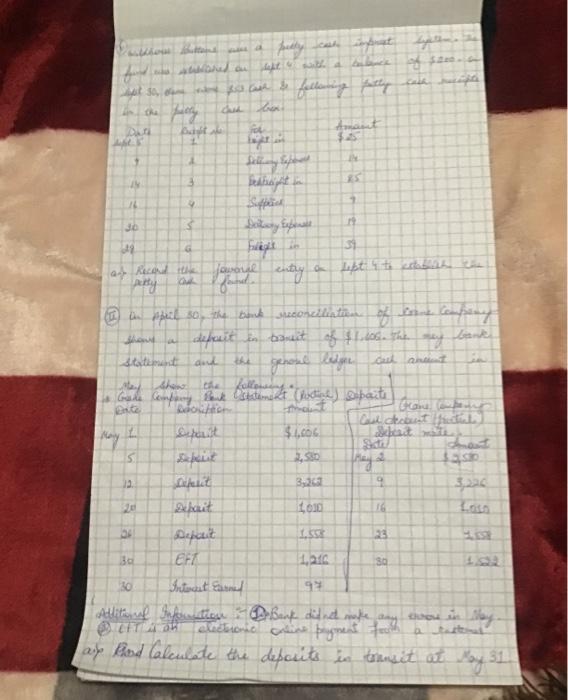 uses a petty cash imprest system. The
fund was established on Sept 4 with a balance of $200. On
Sept 30, there were $53 cash & following petty cash receipts
in the petty cash box.
Date Receipt No For Amount
Sept 5 1 Freight in $25
9 2 Delivery Expense 14
14 3 in 85
16 4 Supplies 9
30 5 Delivery Expense 19
29 6 Freight in 39
a) Record the journal entry on Sept 4 to establish the
petty cash fund.
II On April 30, the bank reconciliation of Crane Company
shows a deposit in transit of $1,606. The may bank
statement and the general ledger cash amount in
May show the following.
Crane Company Bank Statement (Partial) Deposits
Date Description Amount
May 1 Deposit $1,606
5 Deposit 2,580
12 Deposit 3,262
20 Deposit 1,010
26 Deposit 1,558
30 EFT 1,216
30 Interest Earned 97
Crane Company
Cash Account (partial)
Deposit made
Date Amount
May 2 $2,580
9 3,226
16 1,010
23 1,558
30 1,522
Additional Information :- 1) Bank did not make any errors in May
2) EFT is an electronic online payment from a customer
a) Calculate the deposits in transit at May 31